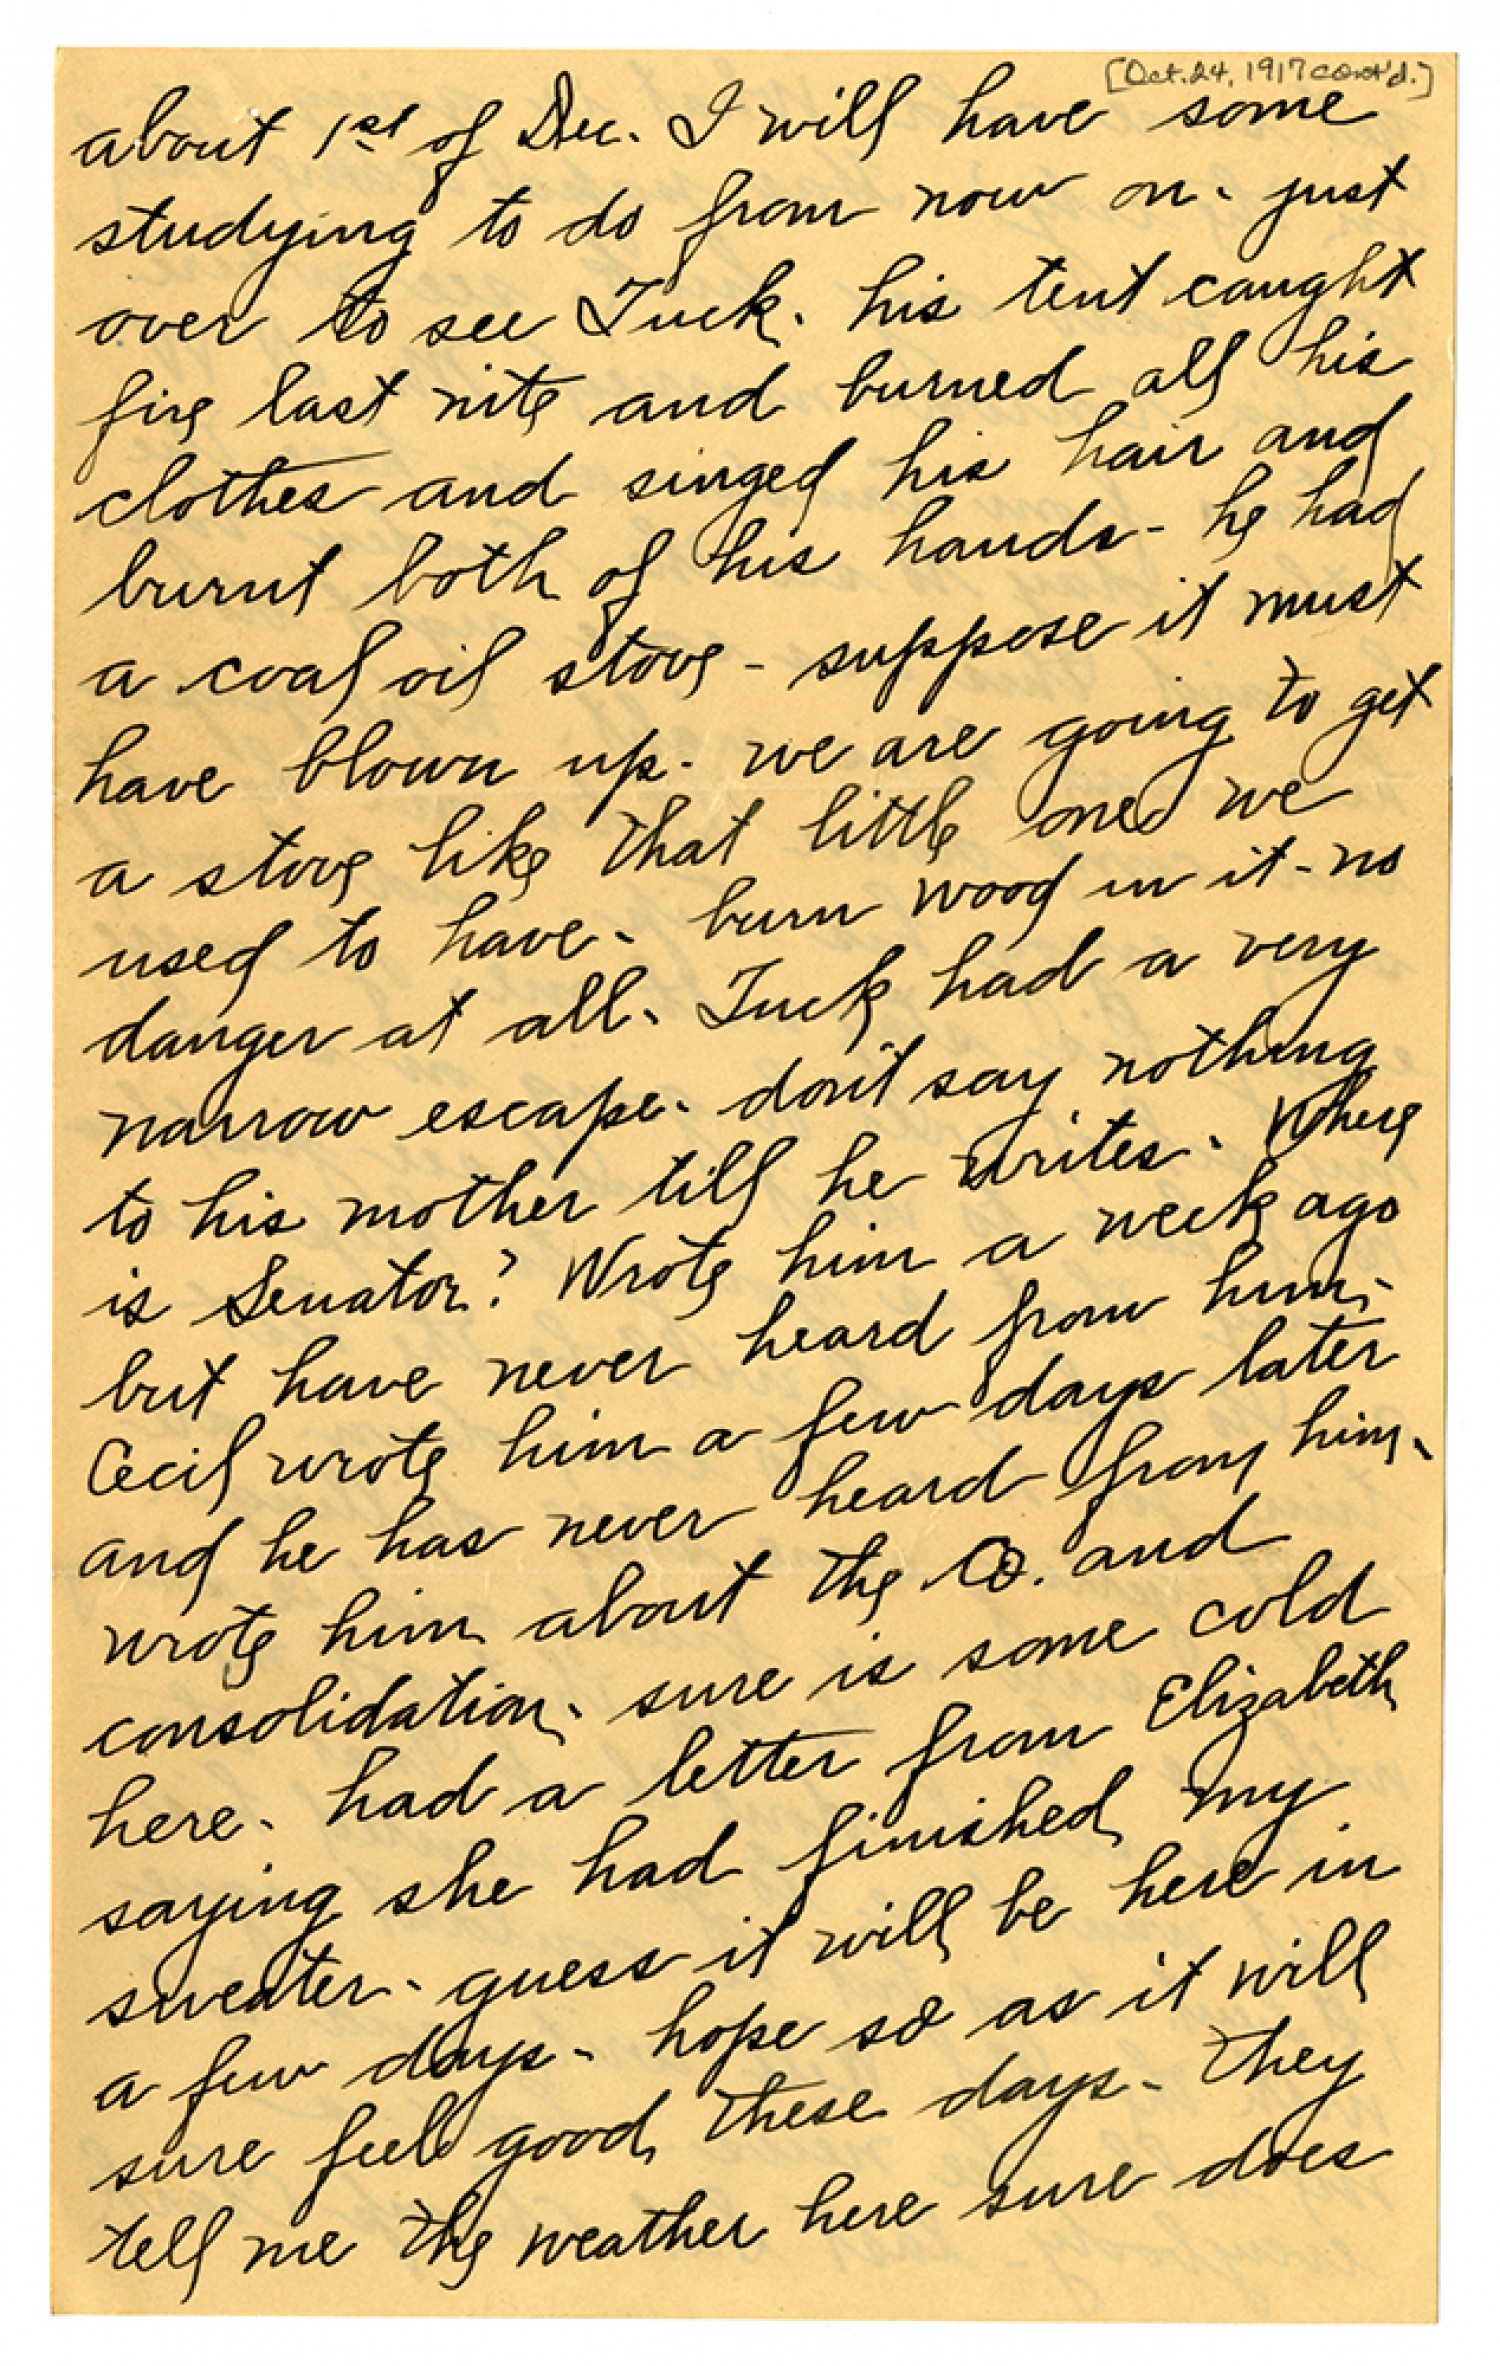 [Oct. 24, 1917 cont'd.]
about 1st of Dec. I will have some
studying to do from now on. just
over to see Tuck. his tent caught
fire last nite and burned all his
clothes and singed his hair and
burnt both of his hands - he had
a coal oil stove - suppose it must
have blown up. we are going to get
a stove like that little one we
used to have. burn wood in it - no
danger at all. Tuck had a very
narrow escape. don't say nothing
to his mother till he writes. Where
is Senator? Wrote him a week ago
but have never heard from him.
Cecil wrote him a few days later
and he has never heard from him.
wrote him about the Co. and
consolidation. sure is some cold
here. had a letter from Elizabeth
saying she had finished my
sweater. guess it will be here in
a few days. hope so as it will
sure feel good these days. They
tell me the weather here sure does